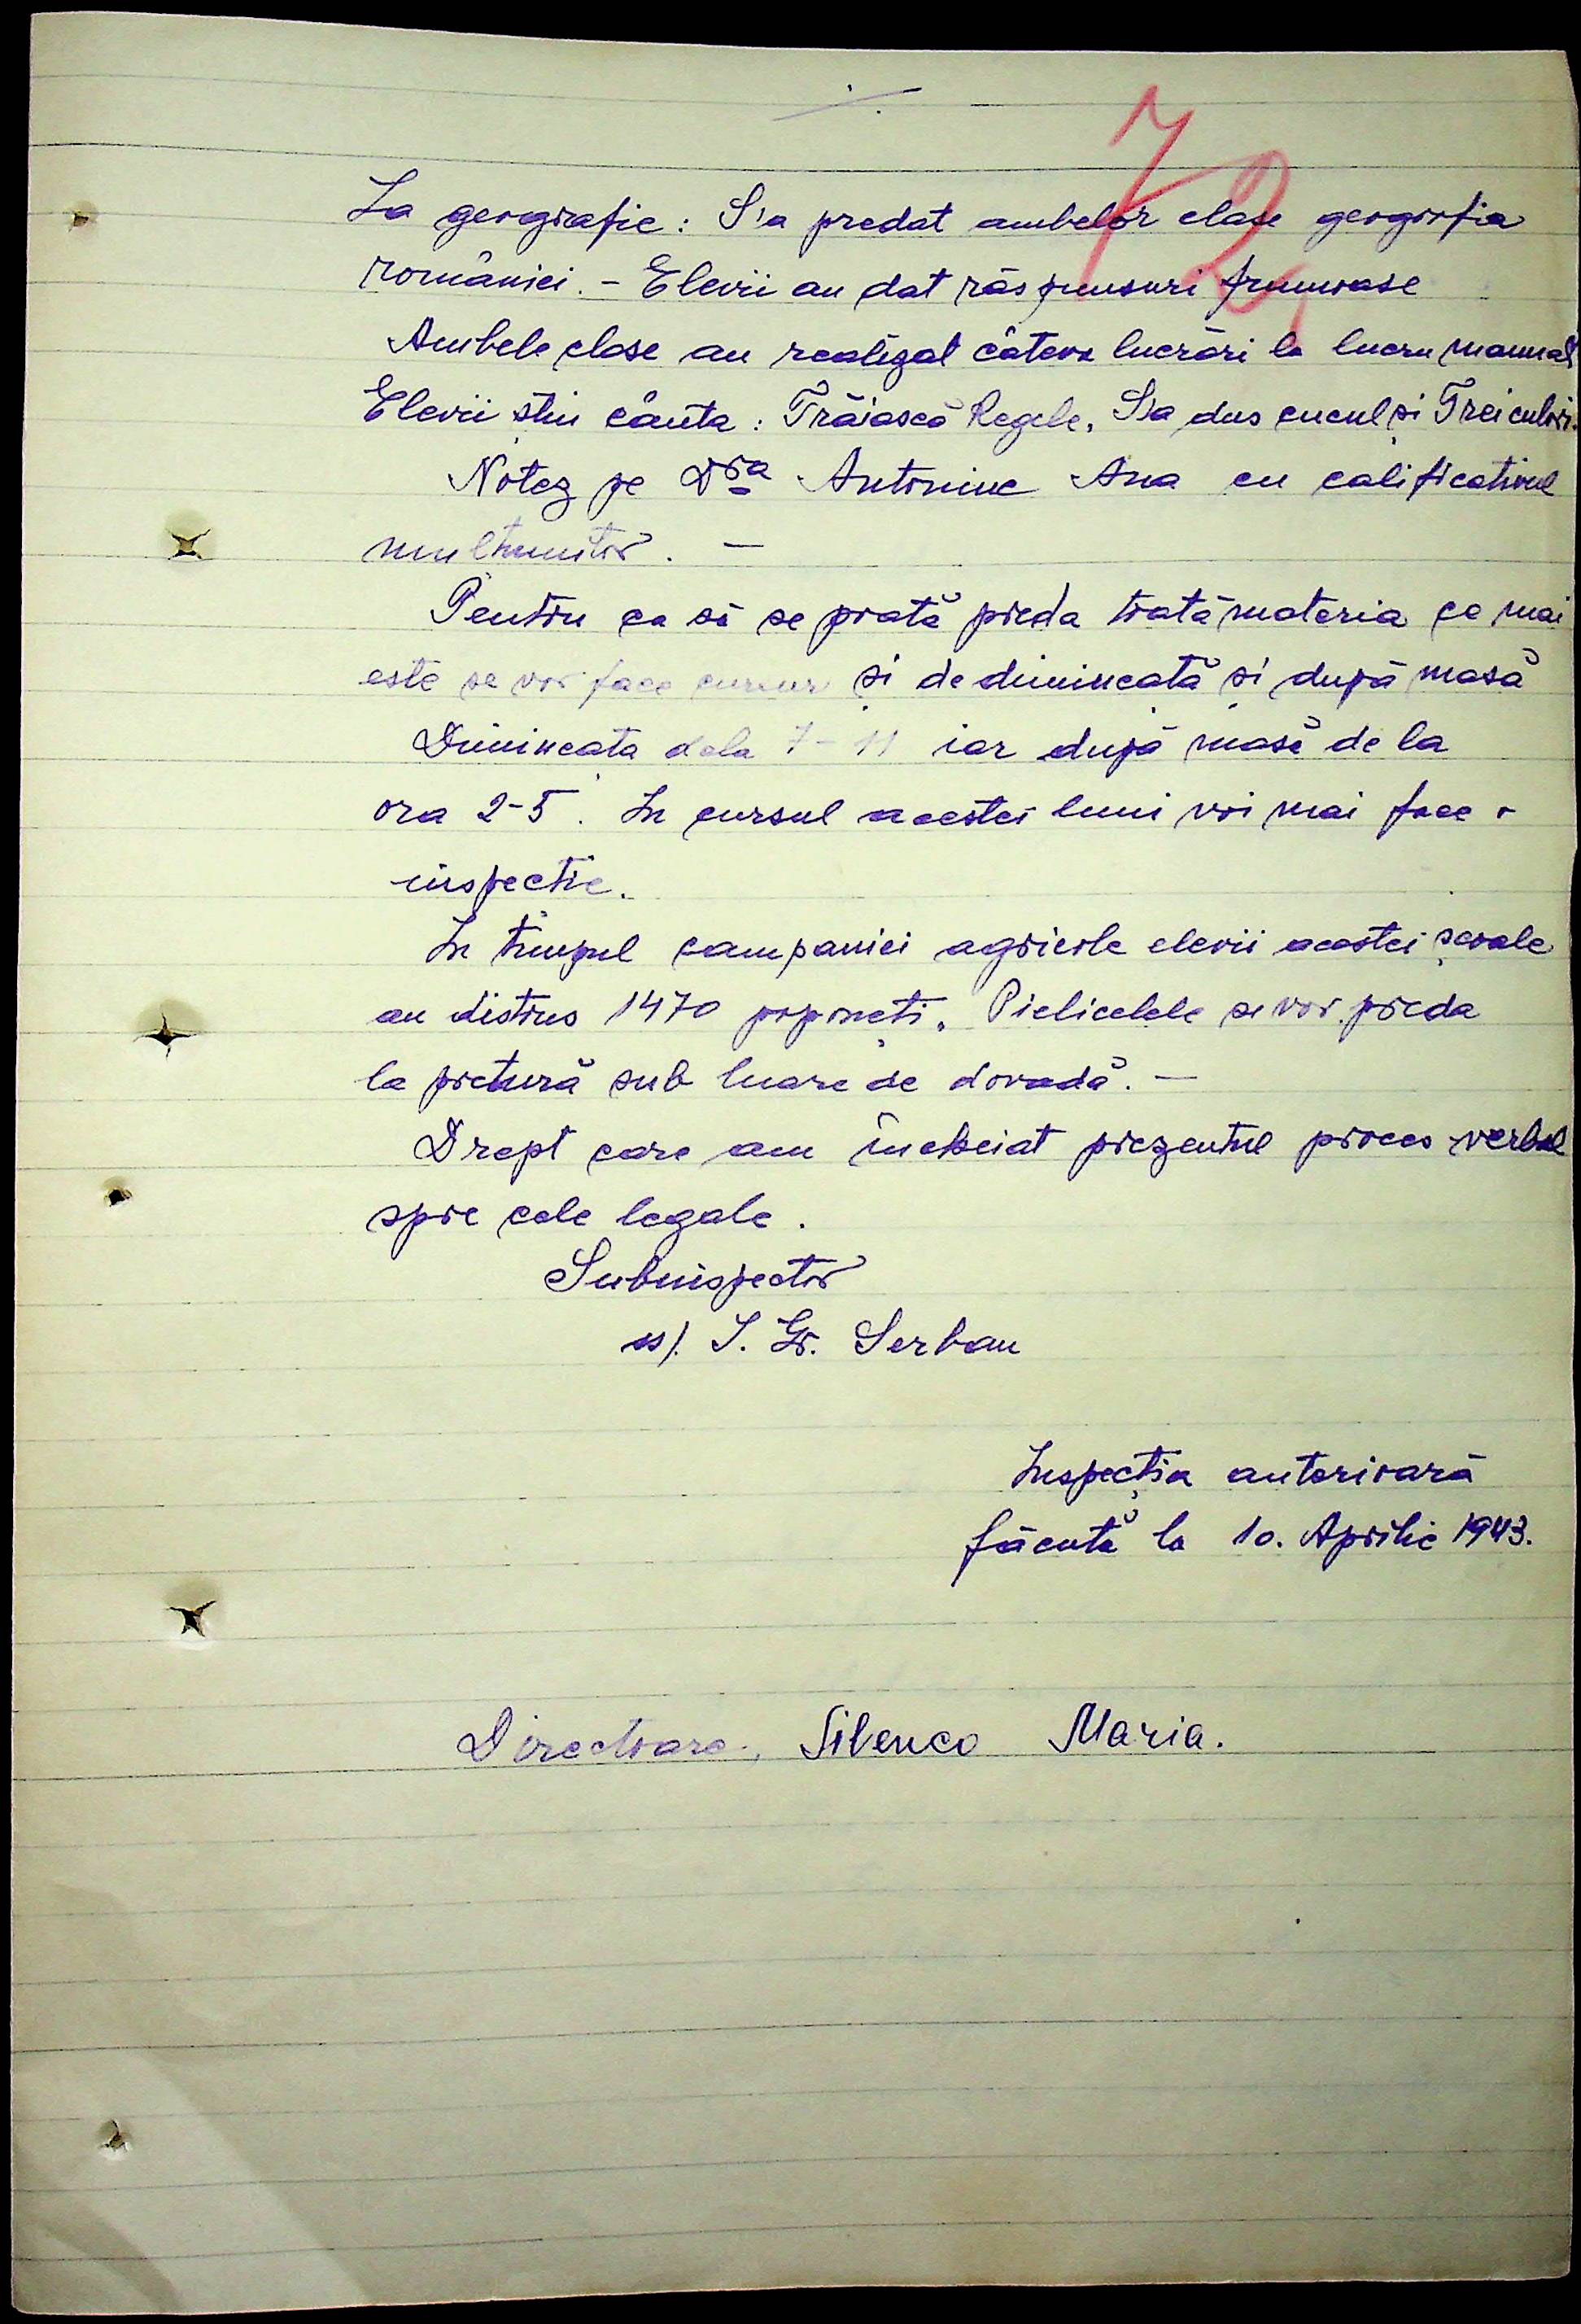 ./.
72
La geografie: S'a predat ambelor clase geografia
româniei. - Elevii au dat răspunsuri frumoase
Ambele clase au realizat câteva lucrări la lucru manual
Elevii știu cânta: Trăiască Regele, S'a dus cucul și Trei culori.
Notez pe Dra Antoniuc Ana cu calificativul
mulțumitor. -
Pentru ca să se poată preda toată materia ce mai
este se vor face cursuri și de dimineață și după masă
Dimineața dela 7-11 iar după masă de la
ora 2-5. In cursul acestei luni voi mai face o
inspecție.
In timpul campaniei agricole elevii acestei școale
au distrus 1470 poponeți. Pielicelele se vor preda
la pretură sub luare de dovadă. -
Drept care am încheiat prezentul proces verbal
spre cele legale.
Subinspector
ss/. I. Gr. Serban
Inspecția anterioară
făcută la 10. Aprilie 1943.
Directoare, Silenco Maria.